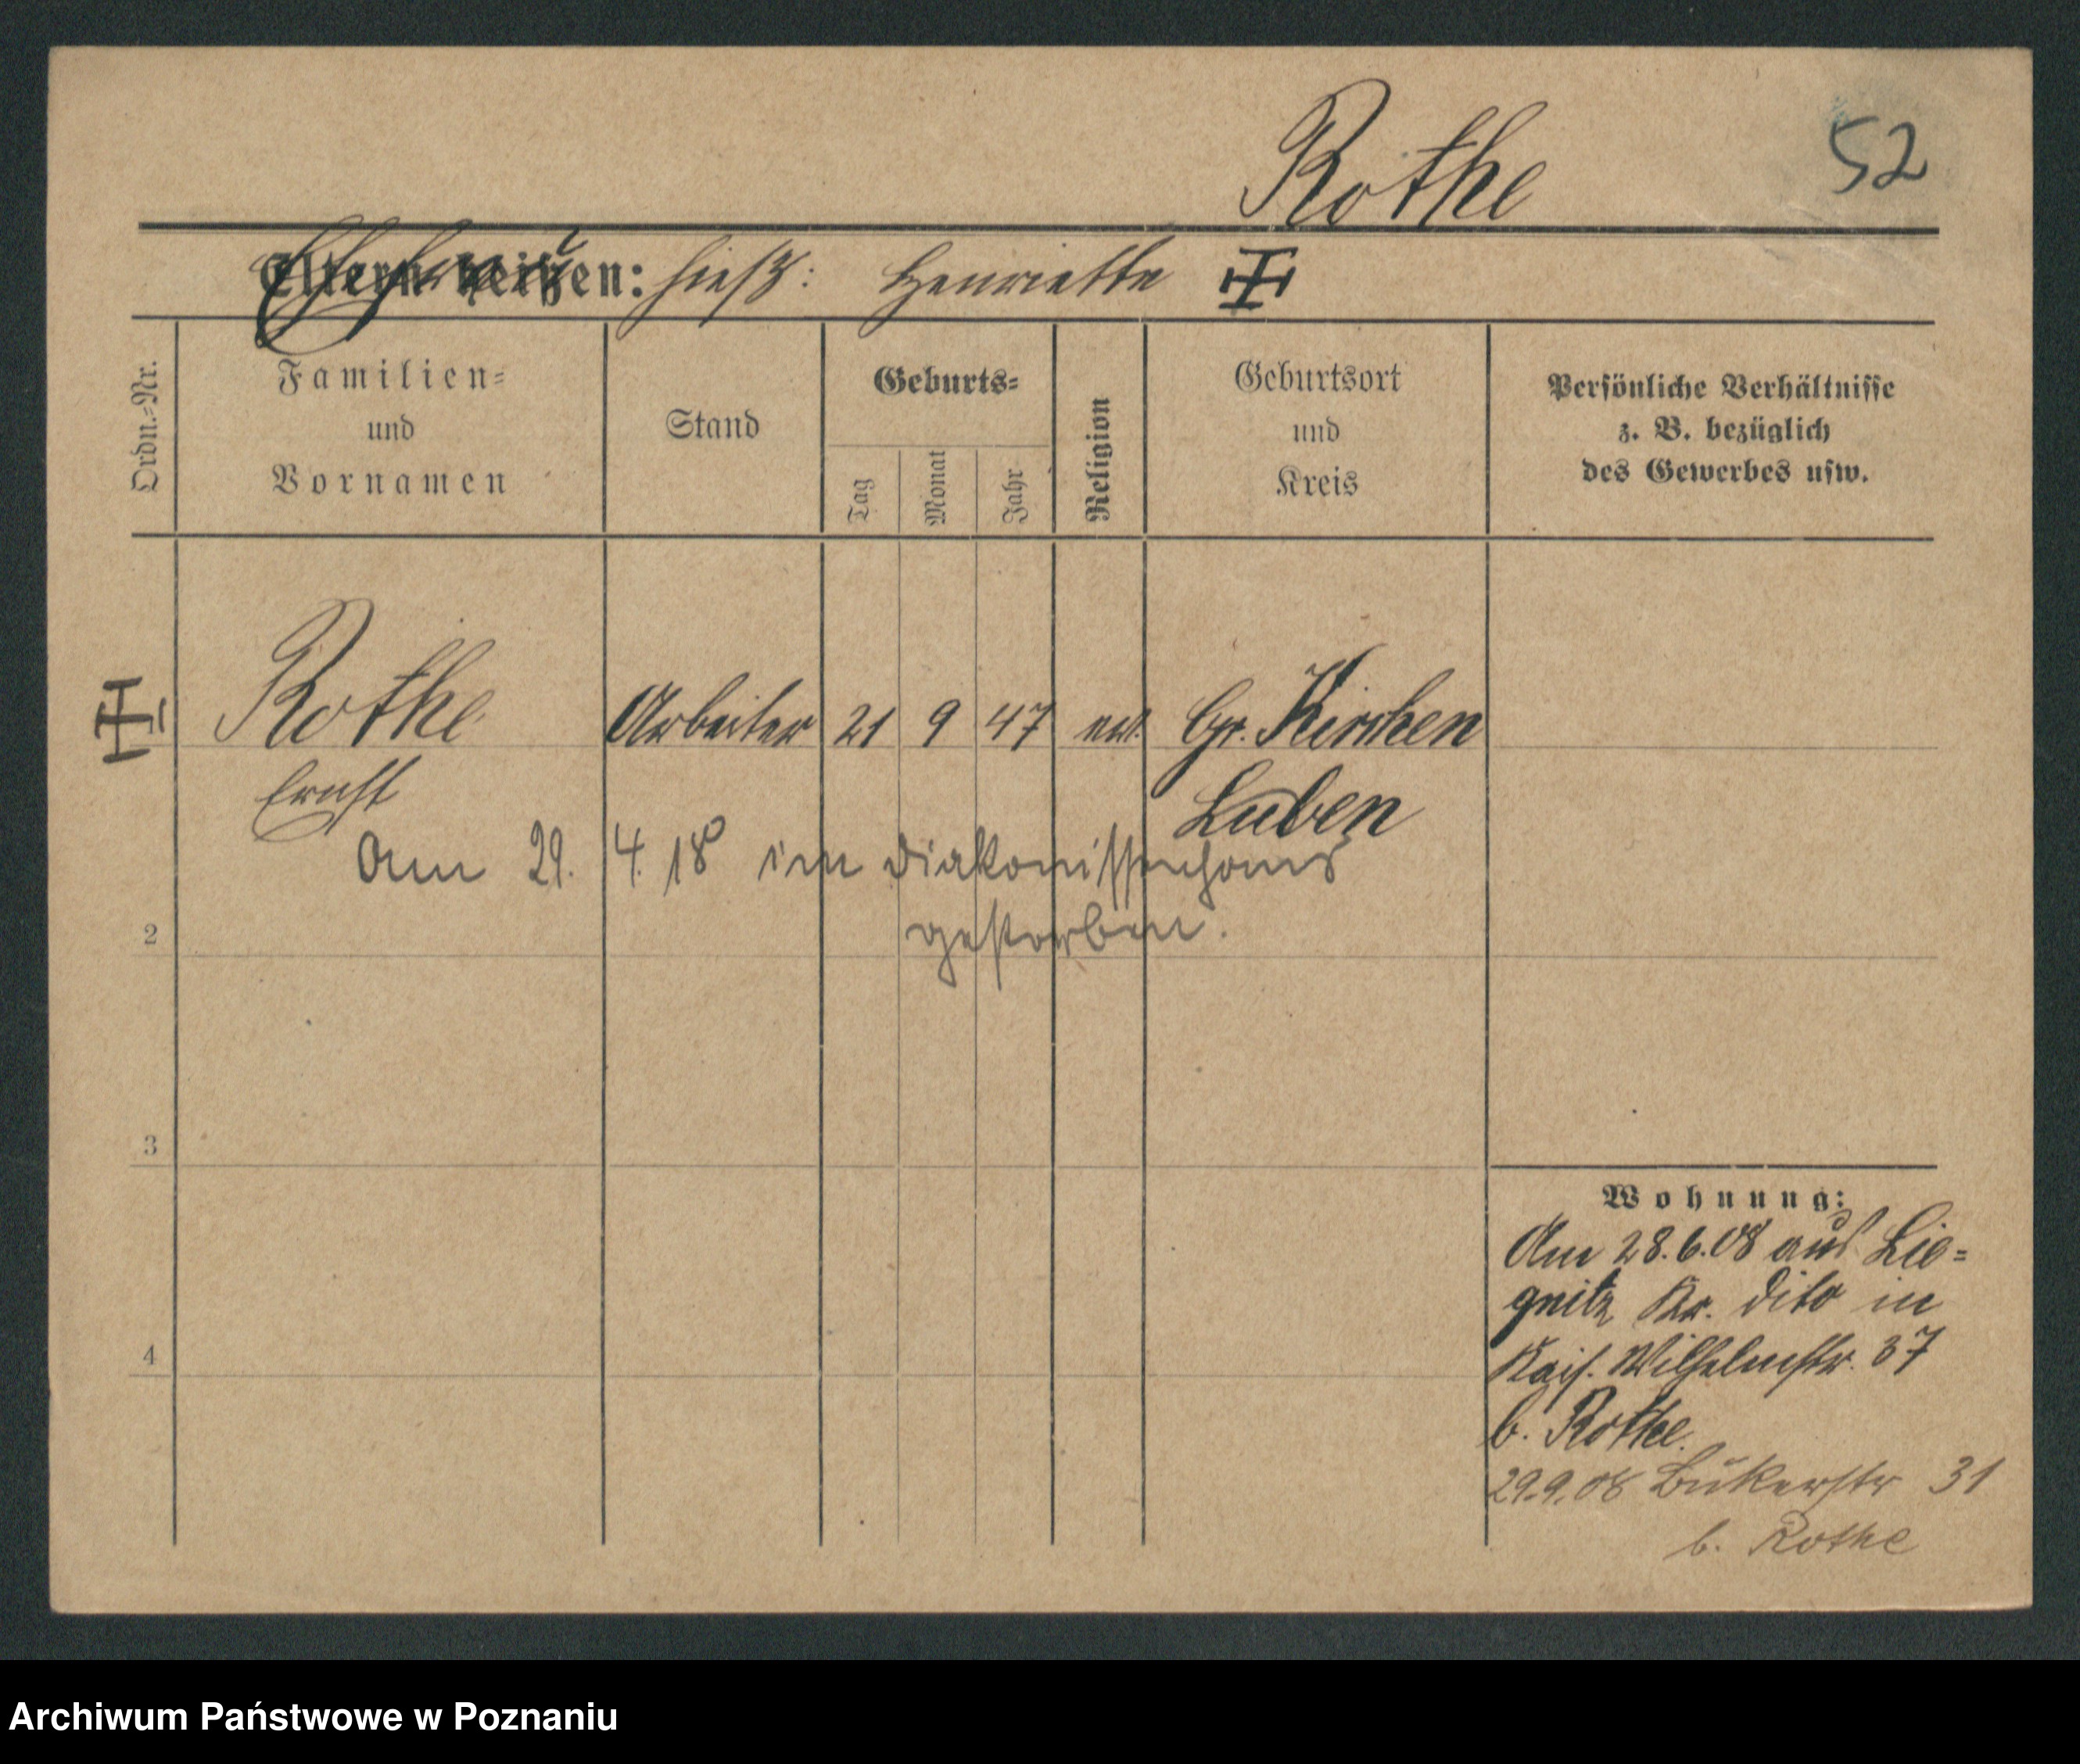 Rothe
52
Eltern heißen: Ehefrau hieß: Henriette
Ordn.-Nr.
Familien-
und
Vornamen
Stand
Geburts-
Tag
Monat
Jahr
Religion
Geburtsort
und
Kreis
Persönliche Verhältnisse
z. B. bezüglich
des Gewerbes usw.
Rothe Arbeiter 21 9 47 ev. Gr. Kirchen
Ernst Luben
Am 29. 4. 18 im Diakonissenhaus
gestorben.
2
3
4
Wohnung:
Am 28.6.08 aus Lie-
gnitz Kr. dito in
Kais. Wilhelmstr. 37
b. Rothe.
29.9.08 Bukerstr 31
b. Rothe
Archiwum Państwowe w Poznaniu